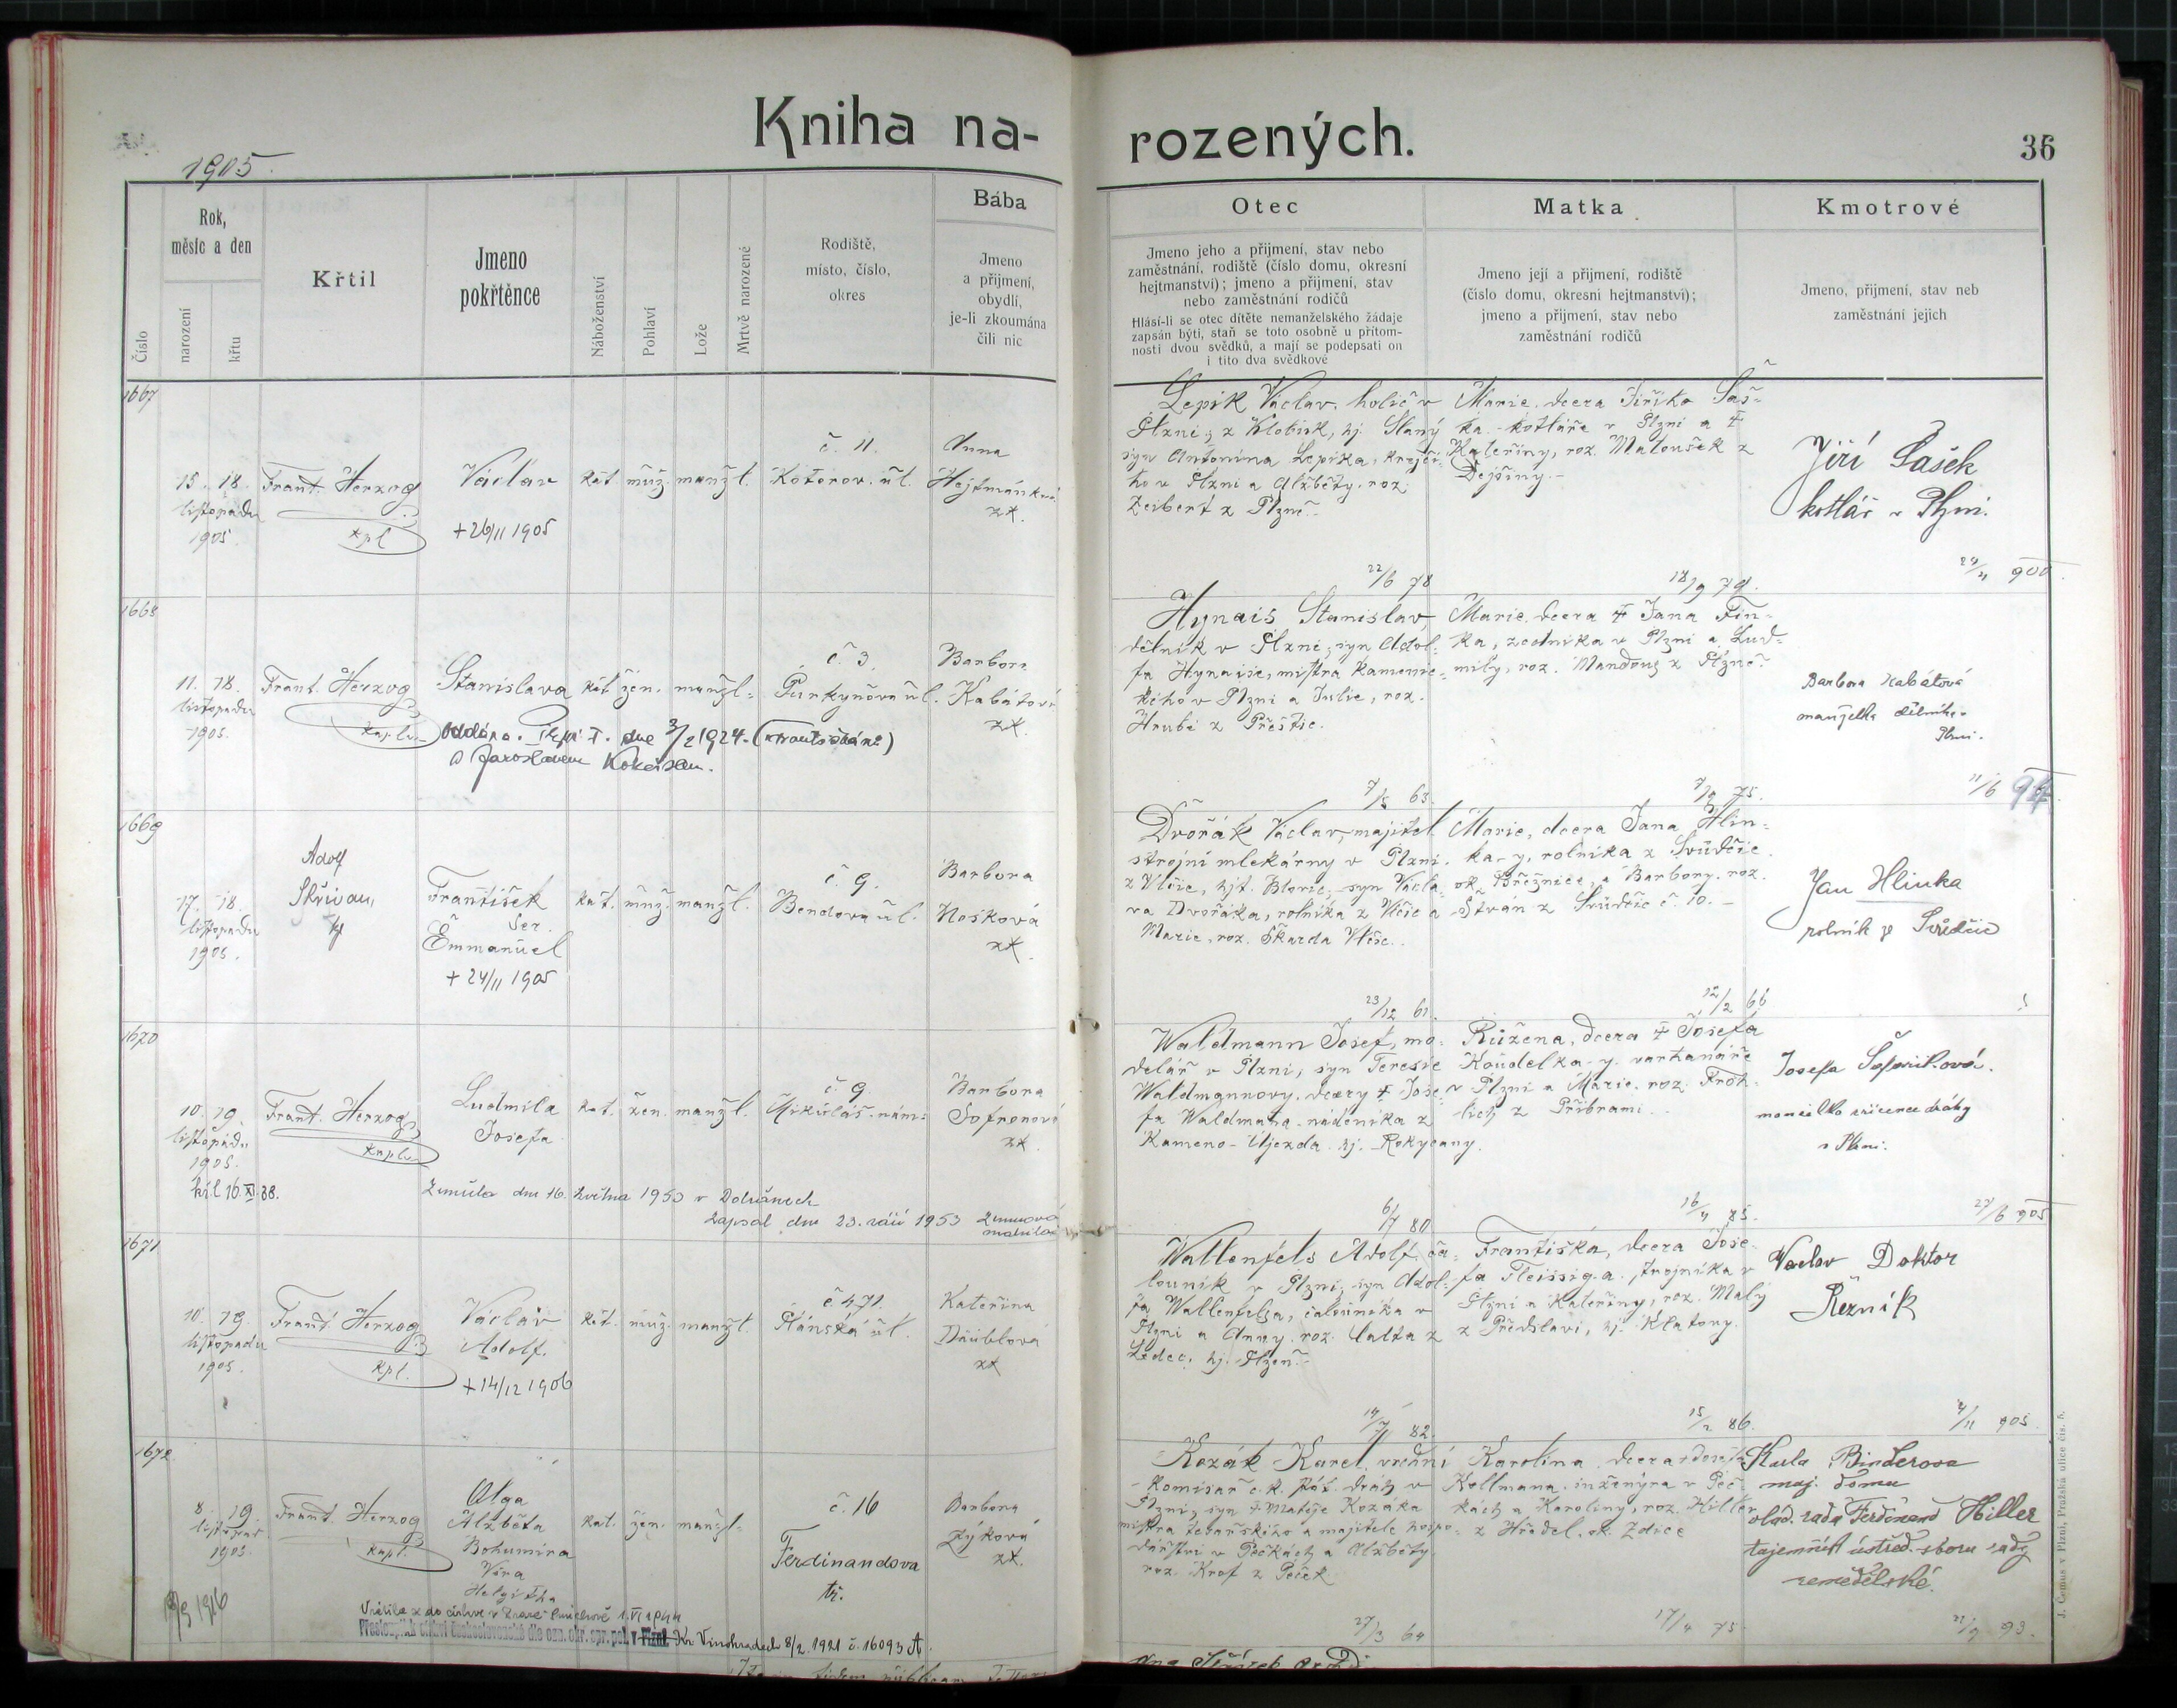 Kniha na-
rozených.
36
1905.
Číslo
Rok,
měsíc a den
narození
křtu
Křtil
Jmeno
pokřtěnce
Náboženství
Pohlaví
Lože
Mrtvě narozené
Rodiště,
místo, číslo,
okres
Bába
Jmeno
a přijmení,
obydlí,
je-li zkoumána
čili nic
Otec
Jmeno jeho a přijmení, stav nebo
zaměstnání, rodiště (číslo domu, okresní
hejtmanství); jmeno a přijmení, stav
nebo zaměstnání rodičů
Hlásí-li se otec dítěte nemanželského žádaje
zapsán býti, staň se toto osobně u přítom-
nosti dvou svědků, a mají se podepsati on
i tito dva svědkové
Matka
Jmeno její a přijmení, rodiště
(číslo domu, okresní hejtmanství);
jmeno a přijmení, stav nebo
zaměstnání rodičů
Kmotrové
Jmeno, přijmení, stav neb
zaměstnání jejich
1667
15. 18.
listopadu
1905.
Frant. Herzog
kpl
Václav
+ 26/11 1905
kat. muž. manžl.
č. 11.
Kotorov. ul.
Anna
Hejtmánková
zk.
Lepík Václav, holič v
Plzni, z Klobuk, hj. Slaný
syn Antonína Lepíka, krejčí-
ho v Plzni a Alžběty, roz.
Zeibert z Plzně.-
22/6 78
Marie, dcera Jiřího Šaš-
ka - kotláře v Plzni a †
Kateřiny, roz. Matoušek z
Dejšiny.-
18/9 79.
Jiří Šašek
kotlář v Plzni.
24/4 900.
1668
11. 18.
listopadu
1905.
Frant. Herzog
kaplan
Stanislava
kat. žen. manžl-
č. 3.
Purkyňova ul.
Barbora
Kabátová
zk.
Oddána. Plzni I. dne 3/2 1924. (františkáni)
s Jaroslavem Kokaislem.
Hynais Stanislav,
dělník v Plzni, syn Adol-
fa Hynaise, mistra kamenic-
kého v Plzni a Julie, roz.
Hrubé z Přeštic.
7/5 63.
Marie, dcera † Jana Fin-
ka, zedníka v Plzni a Lud-
mily, roz. Mandous z Plzně.-
7/9 75.
Barbora Kabátová
manželka dělníka
Plzni.
11/6 94
1669
17. 18.
listopadu
1905.
Adolf
Skřivan,
Františiek
Ser.
Emmanuel
+ 24/11 1905
kat. muž. manžl.
č. 9.
Bendova ul.
Barbora
Nosková
zk.
Dvořák Václav, majitel
strojní mlékárny v Plzni.
z Vlčic, hjt. Blovic, syn Václa-
va Dvořáka, rolníka z Vlčic a
Marie, roz. Škarda Vlčic.
23/12 61.
Marie, dcera Jana Hlin-
ka-y, rolníka z Svučic
ok. Březnice, a Barbory, roz.
Strán z Svučic č. 10.-
12/2 66
Jan Hlinka
rolník z Svučic
1670
10. 19.
listopadu
1905.
Frant. Herzog
kaplan
Ludmila
Josefa
kat. žen. manžl.
č. 9.
Mikuláš. nám.
Barbora
Sofronová
zk.
Zemřela dne 16. května 1953 v Dobřanech
Zapsal dne 23. září 1953
Waldmann Josef, mo-
delář v Plzni, syn Terezie
Waldmannovy, dcery † Jose-
fa Waldmana, nádeníka z
Kameno-Újezda, hj. Rokycany.
6/7 80
Růžena, dcera † Josefa
Koudelka-y, varhanáře
v Plzni a Marie, roz. Froh-
lich z Příbrami.
16/4 85.
Josefa Šafaříková.
manželka zřízence dráhy
v Plzni.
27/6 905
1671
10. 19.
listopadu
1905.
Frant. Herzog
kpl.
Václav
Adolf.
+ 14/12 1906
kat. muž. manžl.
č. 471.
Plánská ul.
Kateřina
Däublová
zk
Wallenfels Adolf, ča-
louník v Plzni, syn Adol-
fa Wallenfelsa, čalouníka v
Plzni a Anny, roz. Calta z
Ledec, hj. Plzeň.-
14/7 82.
Františka, dcera Jose-
fa Fleissig-a, strojníka v
Plzni a Kateřiny, roz. Malý
z Předslavi, hj. Klatovy.
15/2 86.
Václav Doktor
Řezník
4/11 905
1672
8. 19.
listopad.
1905.
Frant. Herzog
kapl.
Olga
Alžběta
Bohumíra
Věra
kat. žen. manžl-
č. 16
Ferdinandova
tř.
Barbora
Zýková
zk.
Přestoupila k církvi československé dle ozn. okr. spr. pol. v Plzni. Kr. Vinohradech 8/2 1921 č. 16093 A.
Kozák Karel, vrchní
komisař c. k. stát. dráh v
Plzni, syn † Matěje Kozáka
mistra tesařského a majitele hospo-
dářství v Pečkách a Alžběty
roz. Krof z Peček
27/3 64
Karolina, dcera † Josefa
Kollmana, inženýra v Peč-
kách a Karoliny, roz. Hiller
z Hředel, ok. Zdice
17/4 75
Karla Binderova
maj. domu
vlád. rada Ferdinand Hiller
tajemník ústřed. sboru rady
zemědělské.
21/9 93.
J. Čermus v Plzni, Pražská ulice čís. 5.